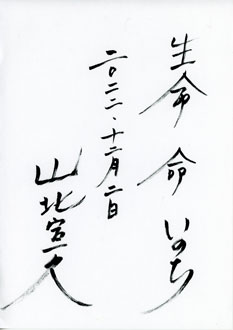 生命 命 いのち
二〇二二、十二月二日
山北宣久